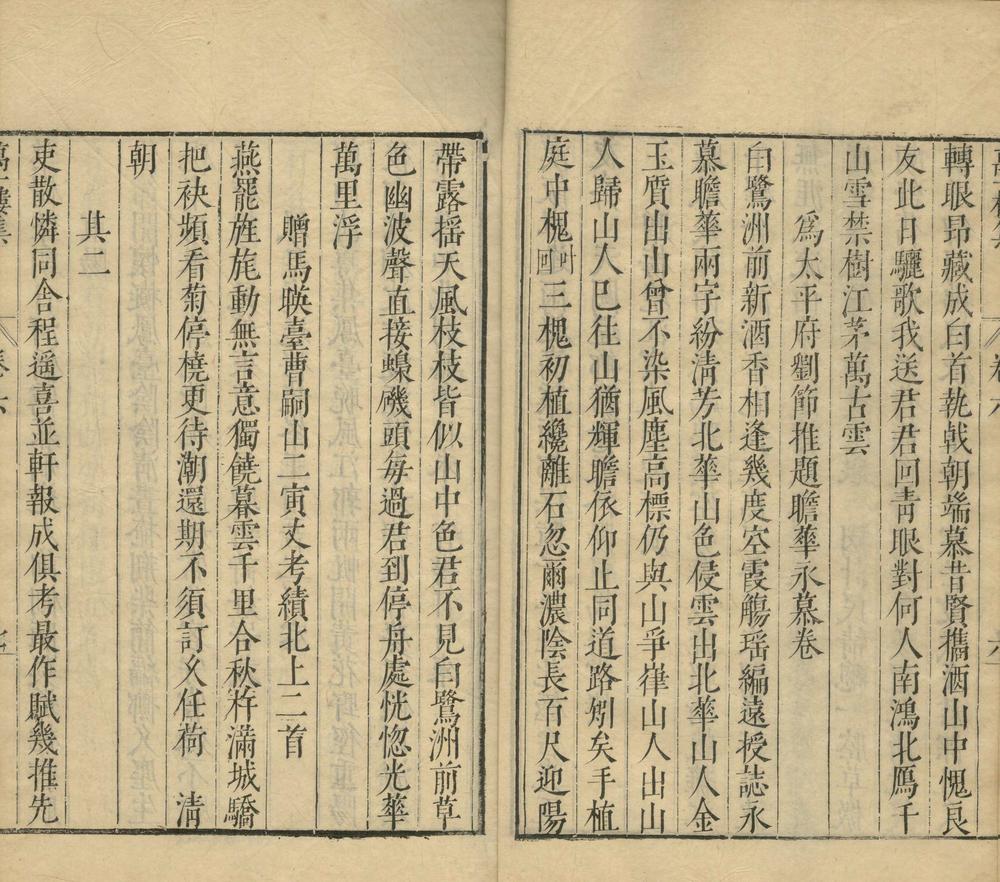 轉眼昂藏成白首執戟朝端慕昔賢攜酒山中愧良
友此日驪歌我送君君回青眼對何人南鴻北鴈千
山雪禁樹江茅萬古雲
為太平府劉節推題瞻華永慕卷
白鷺洲前新酒香相逢幾度空霞觴瑶編遠授誌永
慕瞻華兩字紛清芳北華山色侵雲出北華山人金
玉質出山曾不染風塵高標仍與山爭嵂山人出山
人歸山人已往山猶輝瞻依仰止同道路矧矣手植
庭中槐三槐初植纔離石忽爾濃陰長百尺迎陽
帶露揺天風枝枝皆似山中色君不見白鷺洲前草
色幽波聲直接蟂磯頭每過君到停舟處恍惚光華
萬里浮
贈馬暎臺曹嗣山二寅丈考績北上二首
燕罷旌旄動無言意獨饒暮雲千里合秋符滿城驕
把袂頻看菊停橈更待潮還期不須訂久任荷清
朝
其二
吏散憐同舍程遥喜並軒報成俱考最作賦幾推先
卷六